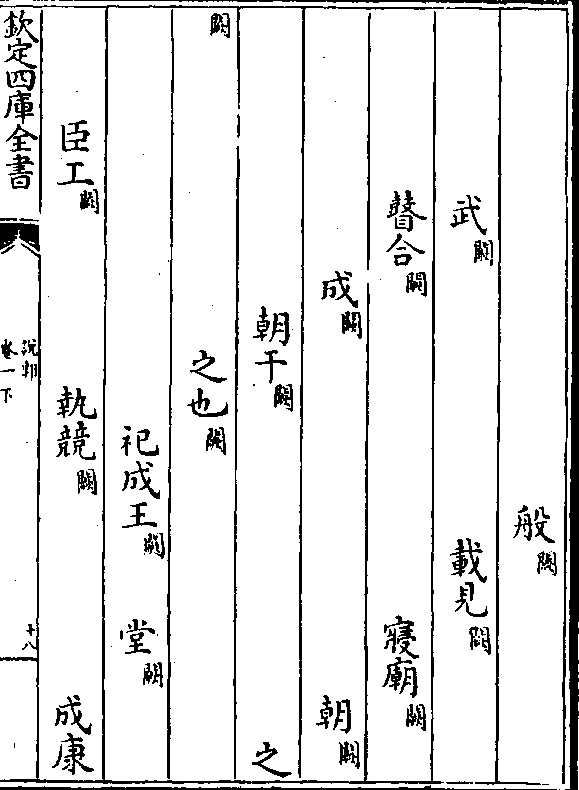 般闕
武闕 載見闕
瞽合闕 寢廟闕
成闕 朝闕
朝干闕 之
闕 之也闕
祀成王闕 堂闕
臣工闕 執競闕 成康
欽定四庫全書
卷一下
十八